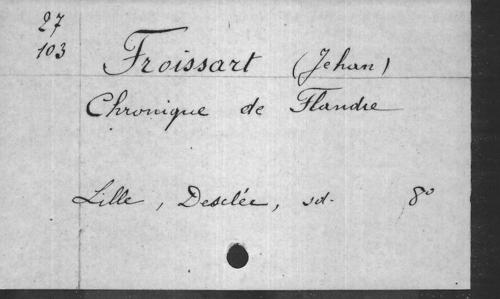 27
103
Froissart (Jehan)
Chronique de Flandre
Lille, Desclée, sd. 8o